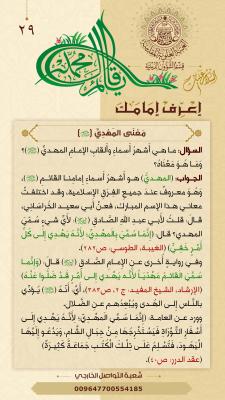 ٢٩
قائم آل محمد
إعرف إمامك
معنى المهدي
السؤال: ما هي أشهر أسماء وألقاب الإمام المهدي؟
وما هو معناه؟
الجواب: (المهدي) هو أشهر أسماء إمامنا القائم،
وهو معروف عند جميع الفرق الإسلامية، وقد اختلفت
معاني هذا الإسم المبارك، فعن أبي سعيد الخراساني،
قال: قلت لأبي عبد الله الصادق: لأي شيء سمي
المهدي؟ قال: (إنما سمي بالمهدي؛ لأنه يهدي إلى كل
أمر خفي) (الغيبة، الطوسي: ص٢٨٢).
وفي رواية أخرى عن الإمام الصادق قال: (وإنما
سمي القائم مهديا لأنه يهدي إلى أمر قد ضلوا عنه)
(الإرشاد، الشيخ المفيد: ج٢، ص٣٨٣)، أي: أنه يؤدي
بالناس إلى الهدى ويبعدهم عن الضلال.
وورد عن العامة: (إنما سمي المهدي؛ لأنه يهدي إلى
أسفار التوراة فيستخرجها من جبال الشام، ويدعو إليها
اليهود، فتسلم على تلك الكتب جماعة كثيرة)
(عقد الدرر: ص٤٠).
شعبة التواصل الخارجي
009647700554185